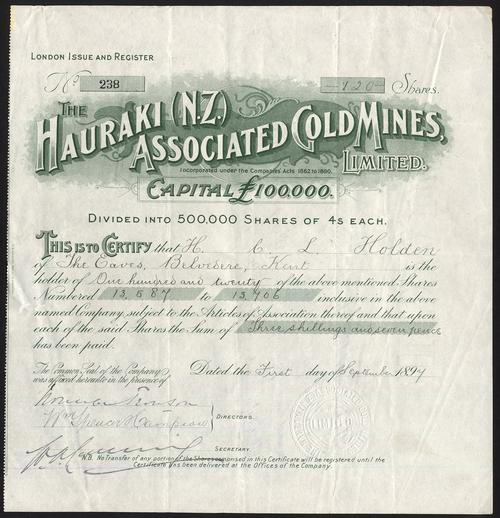 LONDON ISSUE AND REGISTER
No. 238 —120— Shares.
THE
HAURAKI (N.Z.)
ASSOCIATED GOLD MINES,
LIMITED.
Incorporated under the Companies Acts 1862 to 1890.
CAPITAL £100,000.
DIVIDED INTO 500,000 SHARES OF 4S EACH.
THIS IS TO CERTIFY that H. C. L. Holden
of The Eaves, Belvedere, Kent is the
holder of One hundred and twenty of the above mentioned Shares
Numbered 13,587 to 13,706 inclusive in the above
named Company subject to the Articles of Association thereof and that upon
each of the said Shares the Sum of Three shillings and seven pence
has been paid.
The Common Seal of the Company
was affixed hereunto in the presence of
Dated the First day of September 1897
DIRECTORS.
SECRETARY.
N.B. No Transfer of any portion of the Shares comprised in this Certificate will be registered until the
Certificate has been delivered at the Offices of the Company.